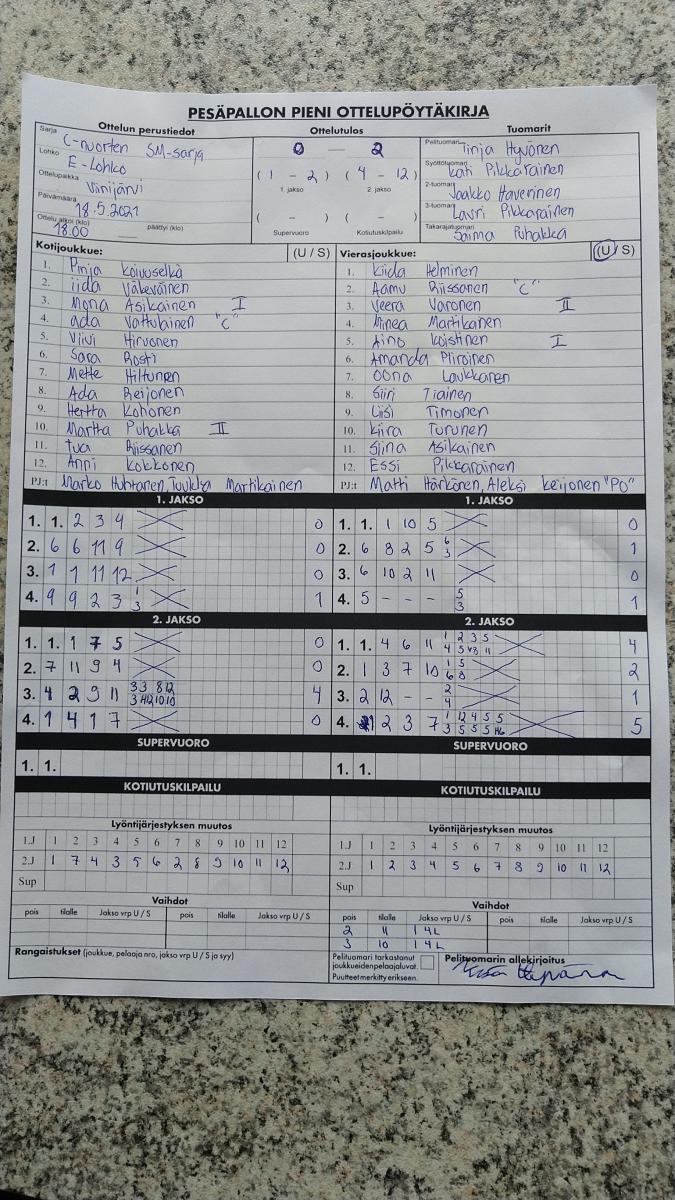 PESÄPALLON PIENI OTTELUPÖYTÄKIRJA
Ottelun perustiedot
Sarja C-nuorten SM-sarja
Lohko E-Lohko
Ottelupaikka Viinijärvi
Päivämäärä 18.5.2021
Ottelu alkoi (klo) 18.00 päättyi (klo)
Ottelutulos
0 — 2
( 1 - 2 ) ( 4 - 12 )
1. jakso 2. jakso
( - ) ( - )
Supervuoro Kotiutuskilpailu
Tuomarit
Pelituomari Tinja Hyvönen
Syöttötuomari Kati Pikkarainen
2-tuomari Jaakko Haverinen
3-tuomari Lauri Pikkarainen
Takarajatuomari Saima Puhakka
Kotijoukkue: (U / S)
1. Pinja Koivuselkä
2. iida Väkeväinen
3. Mona Asikainen I
4. ada Vattulainen "C"
5. Viivi Hirvonen
6. Sara Rosti
7. Mette Hiltunen
8. Ada Reijonen
9. Hertta Kohonen
10. Martta Puhakka II
11. Tua Riissanen
12. Anni Kokkonen
PJ:t Marko Huhtanen, Tuulya Martikainen
Vierasjoukkue: (U / S)
1. Kiida Helminen
2. Aamu Riissanen "C"
3. Veera Varonen II
4. Minea Martikainen
5. Aino Koistinen I
6. Amanda Piiroinen
7. Oona Laukkanen
8. Siiri Tiainen
9. Liisi Timonen
10. Kiira Turunen
11. Siina Asikainen
12. Essi Pikkarainen
PJ:t Matti Härkönen, Aleksi Keijonen "PO"
1. JAKSO
1. 1. 2 3 4 0
2. 6 6 11 9 0
3. 1 1 11 12 0
4. 9 9 2 3 1 3 1
1. JAKSO
1. 1. 1 10 5 0
2. 6 8 2 5 6 3 1
3. 6 10 2 11 0
4. 5 - - - 5 3 1
2. JAKSO
1. 1. 1 7 5 0
2. 7 11 9 4 0
3. 4 2 9 11 3 3 8 12 3 4 12 10 10 4
4. 1 4 1 7 0
2. JAKSO
1. 1. 4 6 11 1 2 3 5 4 5 11 4
2. 1 3 7 10 1 5 6 8 2
3. 2 12 - - 2 4 1
4. 2 3 7 1 12 4 5 5 3 5 5 5 5
SUPERVUORO
1. 1.
SUPERVUORO
1. 1.
KOTIUTUSKILPAILU
KOTIUTUSKILPAILU
Lyöntijärjestyksen muutos
1.J 1 2 3 4 5 6 7 8 9 10 11 12
2.J 1 7 4 3 5 6 2 8 9 10 11 12
Sup
Lyöntijärjestyksen muutos
1.J 1 2 3 4 5 6 7 8 9 10 11 12
2.J 1 2 3 4 5 6 7 8 9 10 11 12
Sup
Vaihdot
pois tilalle Jakso vrp U / S pois tilalle Jakso vrp U / S
Vaihdot
pois tilalle Jakso vrp U / S pois tilalle Jakso vrp U / S
2 11 1 4L
3 10 1 4L
Rangaistukset (joukkue, pelaaja nro, jakso vrp U / S ja syy)
Pelituomari tarkastanut
joukkueiden pelaajaluvat.
Puutteet merkitty erikseen.
Pelituomarin allekirjoitus